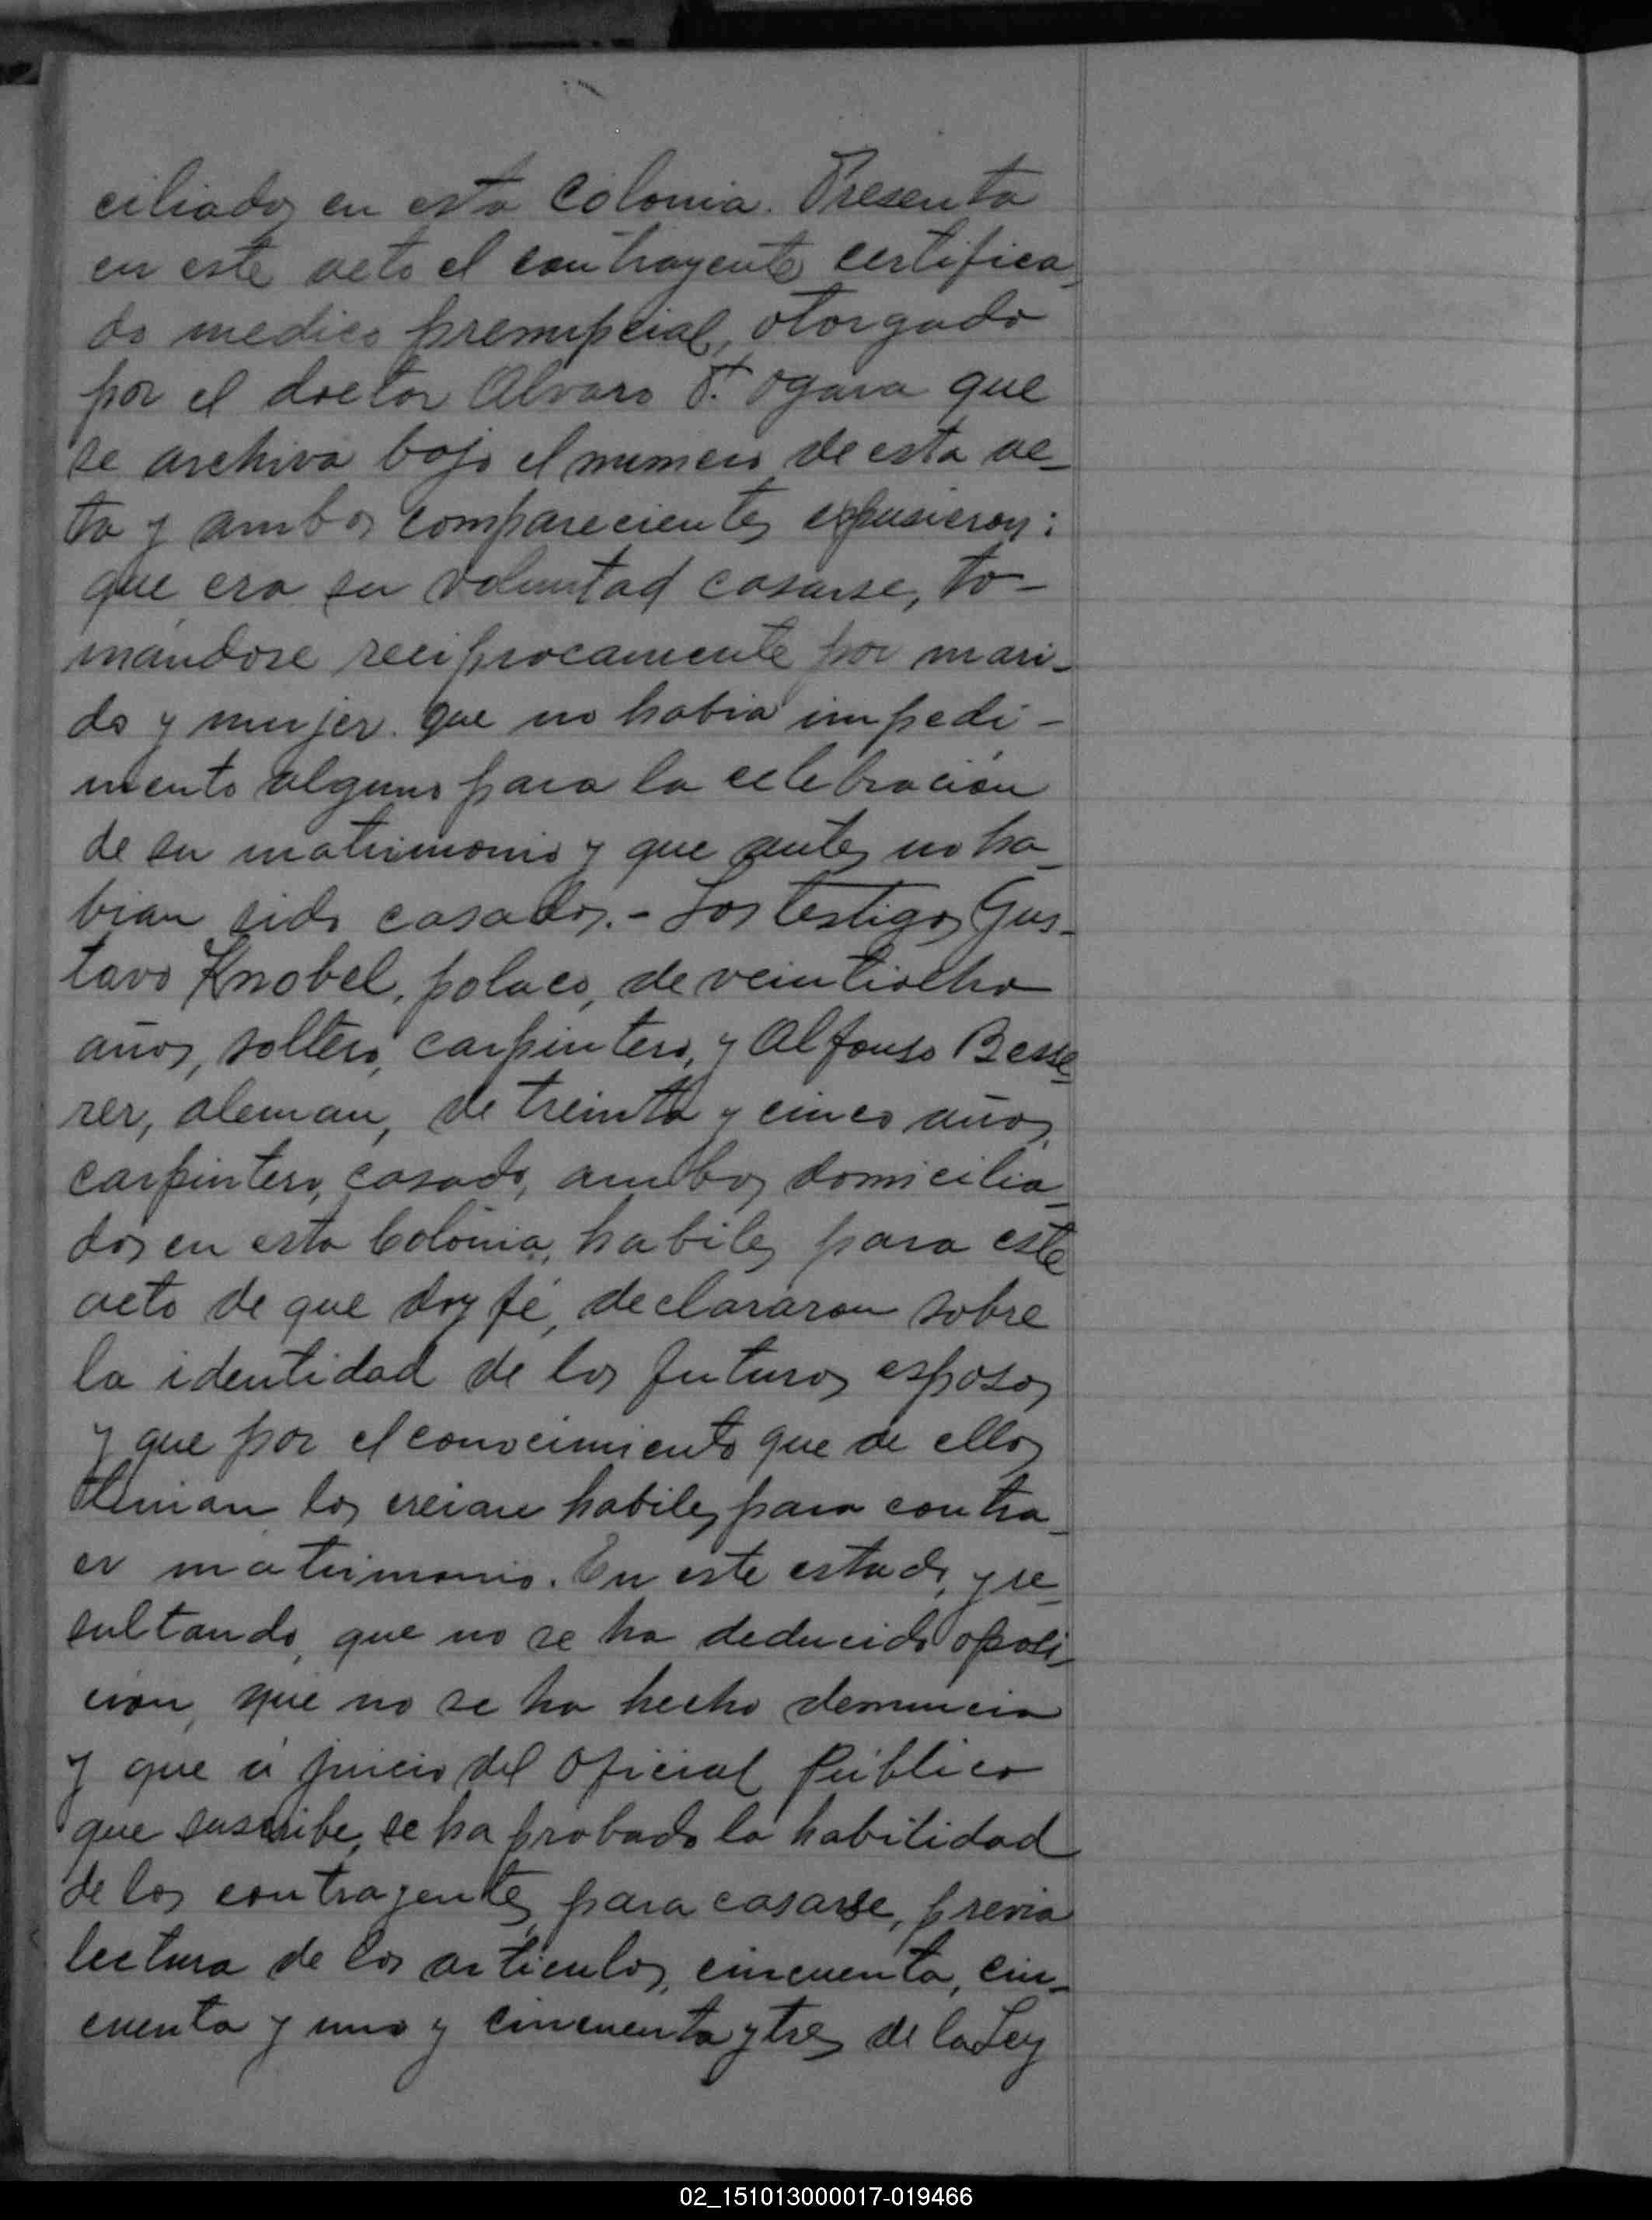 ciliados en esta Colonia. Presenta
en este acto el contrayente certifica-
do medico prenupcial, otorgado
por el doctor Alvaro T. Ogara que
se archiva bajo el numero de esta ac-
ta y ambos comparecientes expusieron:
que era su voluntad casarse, to-
mándose reciprocamente por mari-
do y mujer. que no habia impedi-
mento alguno para la celebración
de su matrimonio y que antes no ha-
bian sido casados.- Los testigos Gus-
tavo Knobel, polaco, de veintiocho
años, soltero, carpintero, y Alfonso Besse-
rer, aleman, de treinta y cinco años,
carpintero, casado, ambos domicilia-
dos en esta Colonia, habiles para este
acto de que doy fé, declararon sobre
la identidad de los futuros esposos
y que por el conocimiento que de ellos
tenian los creian habiles para contra-
er matrimonio. En este estado, y re-
sultando, que no se ha deducido oposi-
cion, que no se ha hecho denuncia
y que á juicio del Oficial Público
que suscribe, se ha probado la habilidad
de los contrayentes para casarse, previa
lectura de los articulos, cincuenta, cin-
cuenta y uno y cincuenta y tres de la Ley
02_151013000017-019466